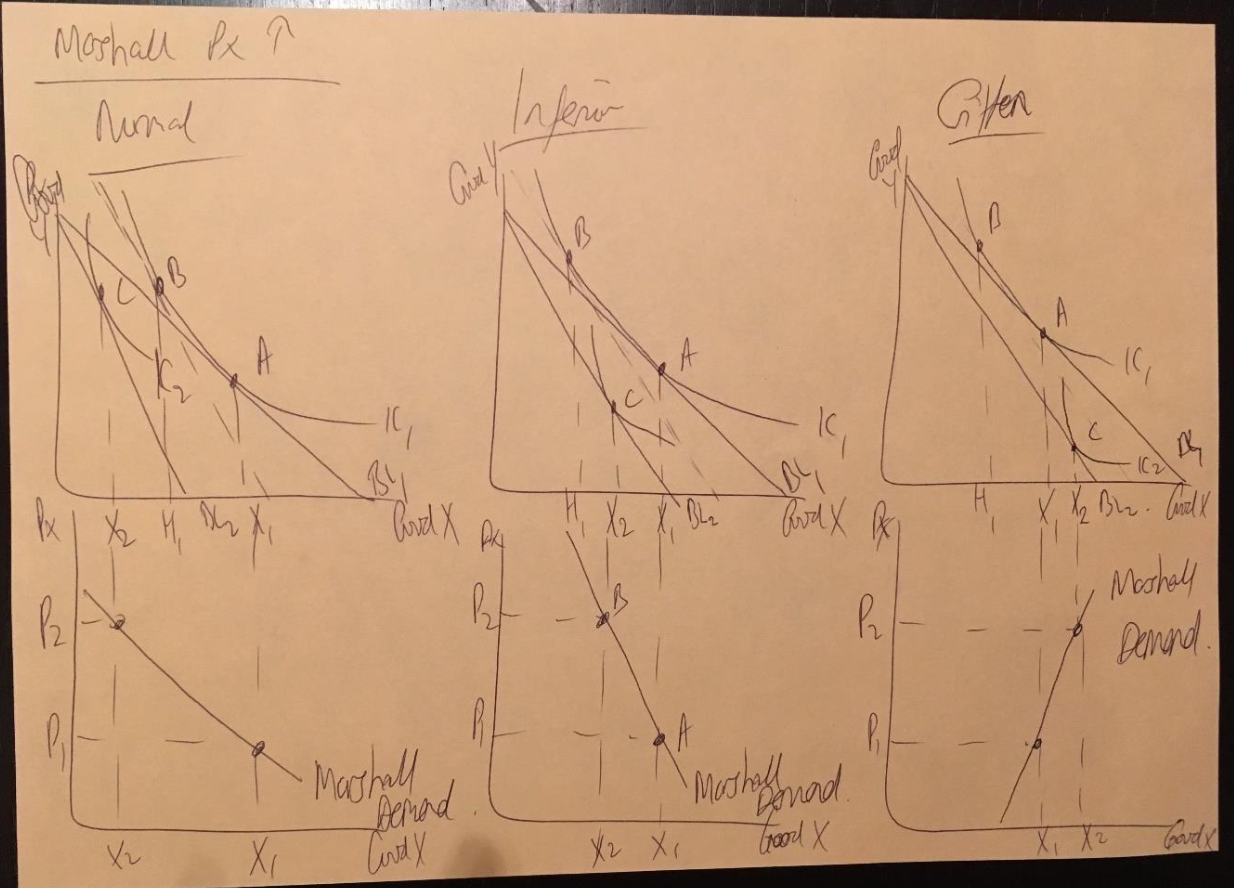 Marshall Px ↑
Normal
Good
Y
B
C
A
IC2
IC1
BL1
X2
H1
BL2
X1
Good X
Px
P2
P1
Marshall
Demand
Good X
X2
X1
Inferior
Good Y
B
A
C
IC1
BL1
H1
X2
X1
BL2
Good X
Px
P2
B
P1
A
Marshall
Demand
Good X
X2
X1
Giffen
Good
Y
B
A
IC1
C
IC2
BL1
H1
X1
X2
BL2
Good X
Px
P2
P1
Marshall
Demand
X1
X2
Good X